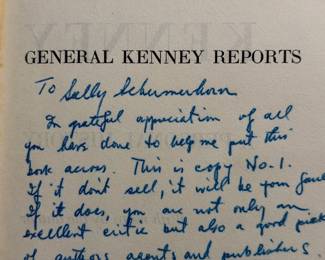 GENERAL KENNEY REPORTS
To Sally Schermerhorn
In grateful appreciation of all
you have done to help me put this
book across. This is copy No. 1.
If it don't sell, it will be your
If it does, you are not only an
excellent critic but also a good
of authors, agents and publishers